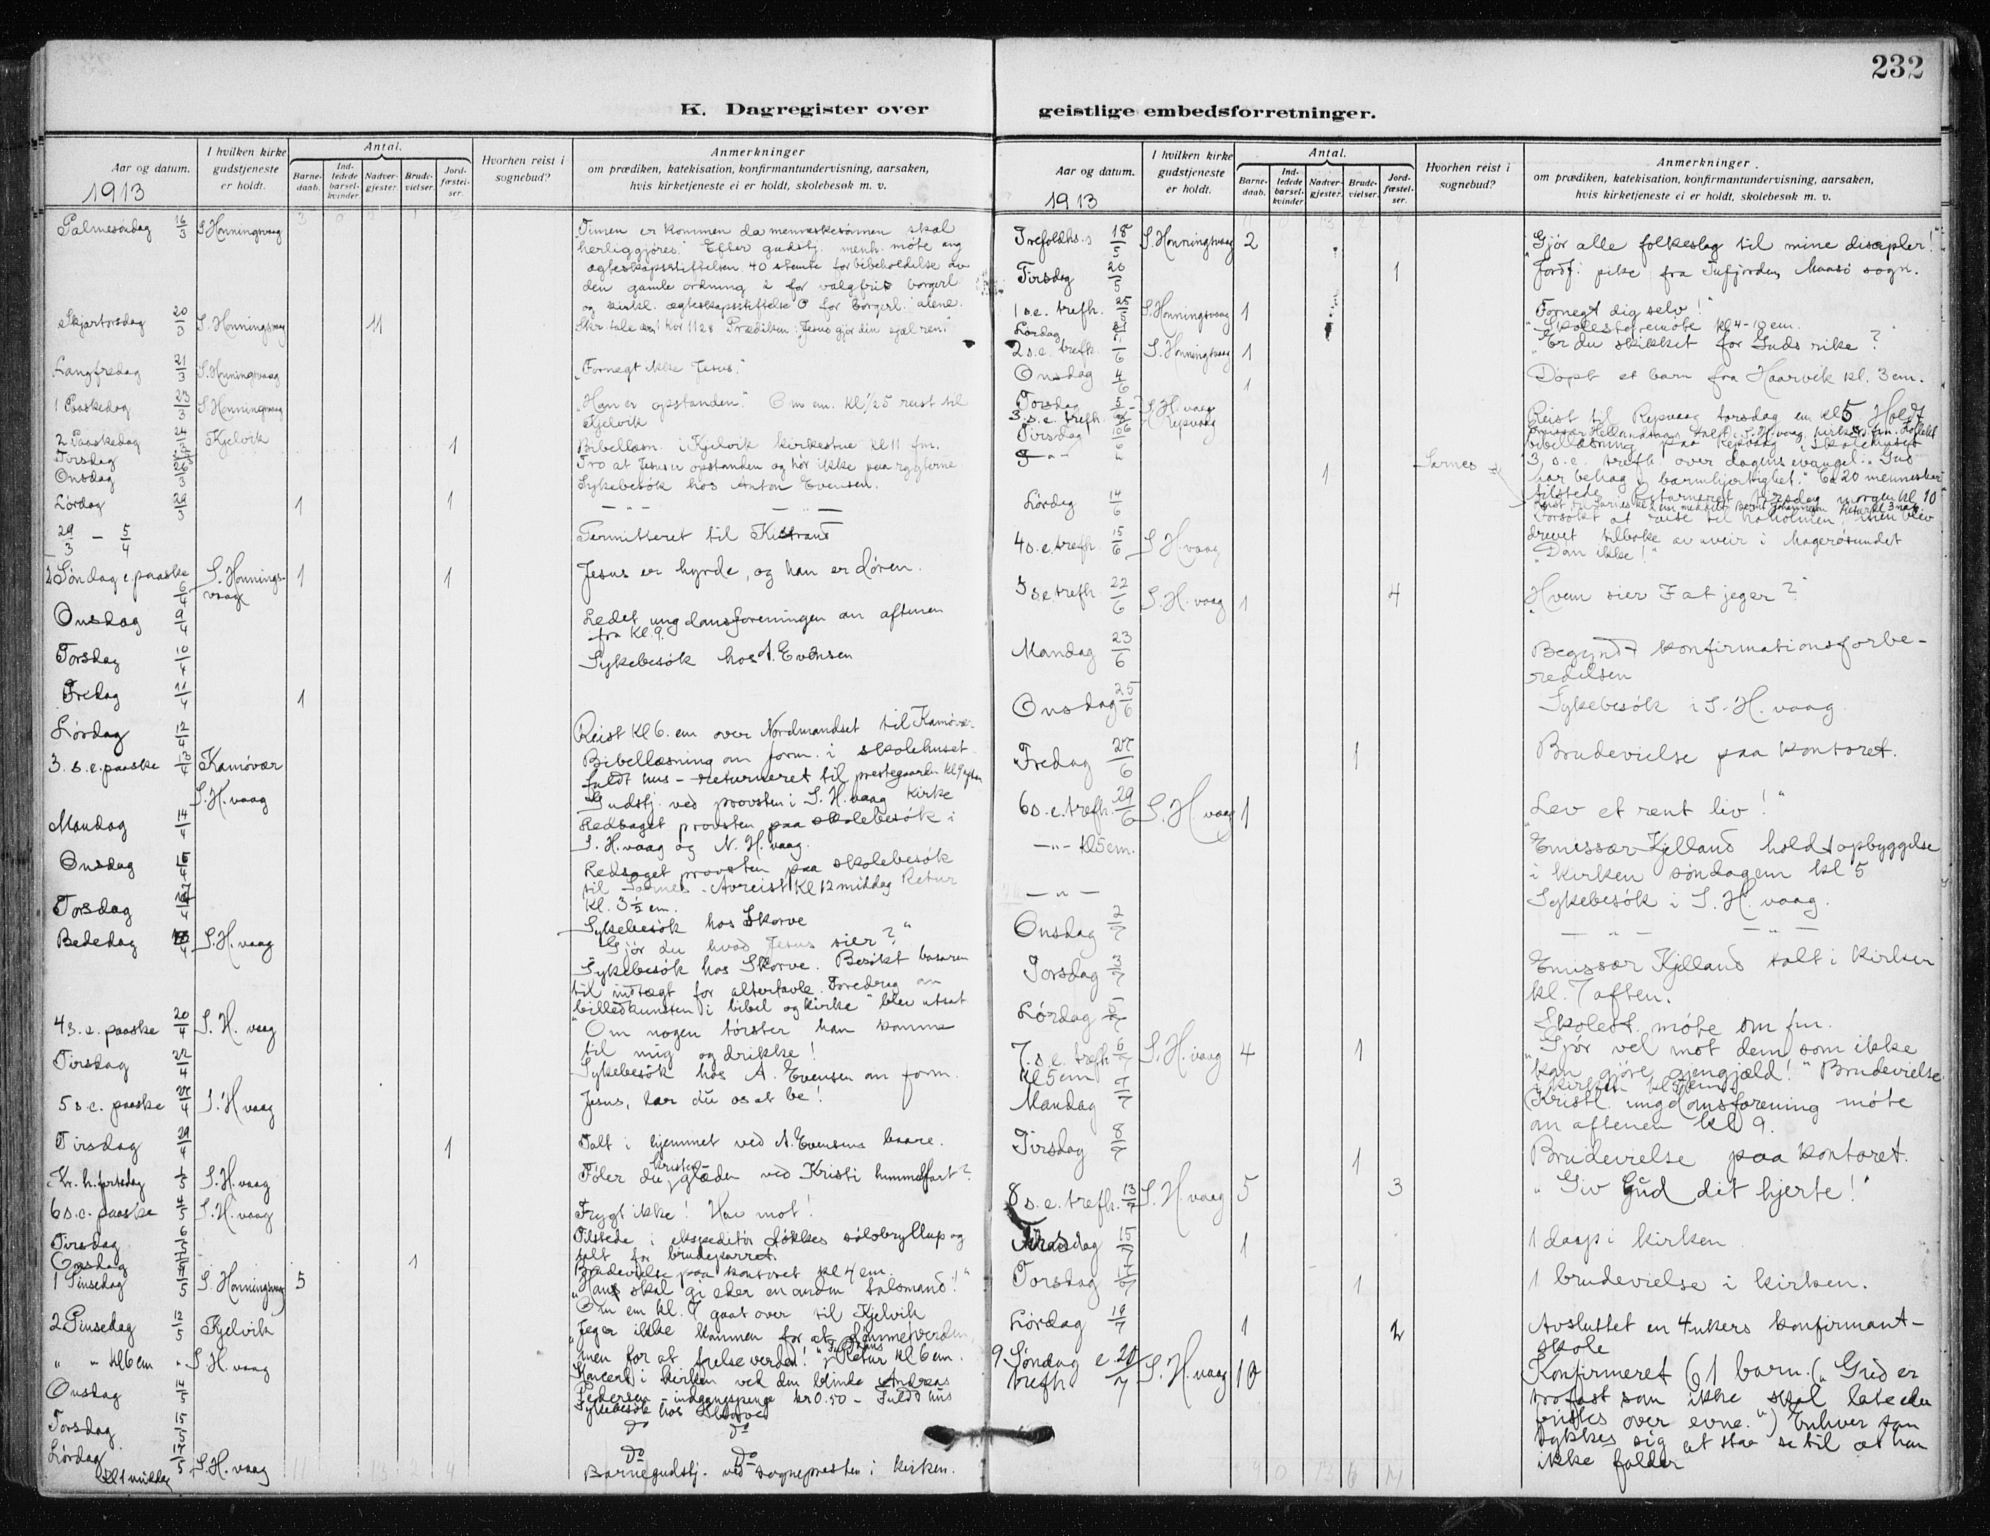 232
K. Dagregister over geistlige embedsforretninger.
Aar og datum.
1913
I hvilken kirke gudstjeneste er holdt.
Antal.
Barne-daab.
Ind-ledede barsel-kvinder
Nadver-gjester.
Brude-vielser.
Jord-fæstel-ser.
Hvorhen reist i sognebud?
Anmerkninger
om prædiken, katekisation, konfirmantundervisning, aarsaken,
hvis kirketjeneste ei er holdt, skolebesøk m. v.
Palmesøndag 16/3 S. Honningsvaag
Timen er kommen da menneskesønnen skal
herliggjøres." Efter gudstj. menh. møte ang
ægteskapsstiftelsen 40 stemte for bibeholdelse av
den gamle ordning 2 for valgfrit borgerl
og kirkl. ægteskapsstiftelse 0 for borgerl. alene.
Skjærtorsdag 20/3 S. Honningsvaag 11 Skr. tale 1 Kor 11 28 Prædiken: "Jesus gjør din sjæl ren!"
Langfredag 21/3 S. Honningsvaag "Fornegt ikke Jesus."
1 Paaskedag 23/3 S. Honningsvaag "Han er opstanden." Om em. kl 1/25 reist til
Kjelvik
2 Paaskedag 24/3 Kjelvik 1 Bibellæsn. i Kjelvik kirkestue kl 11 fm.
Tirsdag Tro at Jesus er opstanden og hør ikke paa rygterne
Onsdag 26/3 Sykebesøk hos Anton Evensen.
Lørdag 29/3 1 1 — " — — " —
29/3 – 5/4 Permitteret til Kistrand
2 Søndag e. paaske 6/4 S. Honnings-vaag 1 1 Jesus er hyrde, og han er døren.
Onsdag 9/4 Ledet ungdomsforeningen om aftenen
fra kl. 9.
Torsdag 10/4 Sykebesøk hos A. Evensen
Fredag 11/4 1
Lørdag 12/4 Reist kl 6. em over Nordmandset til Kamøvær.
3. s. e. paaske 13/4 Kamøvær Bibellæsning om form. i skolehuset.
fuldt hus – returneret til prestegaarden kl 9 aften
S. H. vaag Gudstj. ved provsten i S. H. vaag kirke
Mandag 14/4 Ledsaget provsten paa skolebesøk i
S. H. vaag og N. H. vaag.
Onsdag 16/4 Ledsaget provsten paa skolebesøk
til Sarnes. Avreist kl 12 middag Retur
kl. 3 1/2 em.
Torsdag 17/4 Sykebesøk hos Skorve
Bededag 18/4 S. H. vaag "Gjør du hvad Jesus sier?"
Sykebesøk hos Skorve. Besøkt basaren
til indtægt for altertavle. Foredrag om
"billedkunsten i bibel og kirke" blev utsat
4 s. e. paaske 20/4 S. H. vaag "Om nogen tørster han komme
til mig og drikke!
Tirsdag 22/4 Sykebesøk hos A. Evensen om form.
5 s. e. paaske 27/4 S. H vaag Jesus, lær du os at be!
Tirsdag 29/4 1 Talt i hjemmet ved A. Evensens baare.
Kr. h. fartsdag 1/5 S. H. vaag Føler du kristen-glæden ved Kristi himmelfart?
6 s. e. paaske 4/5 S. H. vaag Frygt ikke! Hav mot!
Tirsdag 6/5 Tilstede i ekspeditør Løkkes sølvbryllup og
talt for brudeparret.
Onsdag 7/5 1 Brudevielse paa kontoret kl 4 em.
1 Pinsedag 11/5 S. Honningsvaag 5 "Han skal gi eder en anden talsmand!"
Om em kl. 7 gaat over til Kjelvik
2 Pinsedag 12/5 Kjelvik "Jeg er ikke kommen for at dømme verden,
" " kl 6 em " S. H. vaag men for at frelse verden!" Retur kl 6 em.
Onsdag Koncert i kirken ved den blinde Andreas
Pedersen – indgangspenge kr 0.50 – Fuldt hus
Sykebesøk hos Skorve
Torsdag 15/5 Do Do
Lørdag 17/5 Do Do
kl 1 middag S. H. vaag Barnegudstj. ved sogneprosten i kirken.
Aar og datum.
1913
I hvilken kirke gudstjeneste er holdt.
Antal.
Barne-daab.
Ind-ledede barsel-kvinder
Nadver-gjester.
Brude-vielser.
Jord-fæstel-ser.
Hvorhen reist i sognebud?
Anmerkninger.
om prædiken, katekisation, konfirmantundervisning, aarsaken,
hvis kirketjeneste ei er holdt, skolebesøk m. v.
Trefoldhs. s 18/5 S. Honningsvaag 2 "Gjør alle folkeslag til mine disipler!"
Tirsdag 20/5 1 Jordf. pike fra Tufjorden, Maasø sogn.
1 s. e. trefh. 25/5 S. Honningsvaag 1 Fornegt dig selv!"
Lørdag Skolestyremøte kl 4–10 em.
2 s. e. trefh. 1/6 S. Honningsvaag 1 "Er du skikket for Guds rike?"
Onsdag 4/6 1 Døpt et barn fra Haarvik kl. 3 em.
Torsdag 5/6 S. H. vaag Reist til Repvaag torsdag em kl 5 Holdt
3. s. e. trefh. 8/6 Repvaag
Tirsdag 10/6 bibellæsning paa Repvaag i skolehuset
" 1 Sarnes 3. s. e. trefh. over dagens evangel: "Gud
har behag i barmhjertighet." Ca 20 mennesker
tilstede. Returneret tirsdag morgen kl 10
Lørdag 14/6 Forsøkt at reise til men blev
drevet tilbake av uveir i Magerøsundet
4 s. e. trefh 15/6 S. H. vaag "Døm ikke!"
5 s. e. trefh. 22/6 S. H. vaag 1 4 "Hvem sier I at jeg er?"
Mandag 23/6 Begyndt konfirmationsforbe-
redelsen
Onsdag 25/6 Sykebesøk i S. H. vaag
Fredag 27/6 1 Brudevielse paa kontoret.
6 s. e. trefh. 29/6 S. H. vaag 1 Lev et rent liv!"
— " — kl 5 em. Emissær Kjelland holdt opbyggelse
i kirken søndag em kl 5
— " — Sykebesøk i S. H. vaag.
Onsdag 2/7 — " — — " —
Torsdag 3/7 Emissær Kjelland talt i kirken
kl. 7 aften.
Lørdag 5/7 Skolest. møte om fm.
7. s. e. trefh 6/7 S. H. vaag 4 1 "Gjør vel mot dem som ikke
kl 5 em kan gjøre gjengjæld!" Brudevielse
i kirken kl 5 em
Mandag 7/7 Kristl. ungdomsforening møte
om aftenen kl 9.
Tirsdag 8/7 1 Brudevielse paa kontoret.
8 s. e. trefh. 13/7 S. H vaag 5 3 "Giv Gud dit hjerte!"
Tirsdag 15/7 1 1 daap i kirken
Torsdag 17/7 1 1 brudevielse i kirken.
Lørdag 19/7 1 2 Avsluttet en 4 ukers konfirmant-
skole
9 Søndag e. trefh. 20/7 S. H. vaag 10 Konfirmeret 61 barn. ("Gud er
trofast som ikke skal late eder
fristes over evne.") Enhver som
tykkes sig at staa se til at han
ikke falder